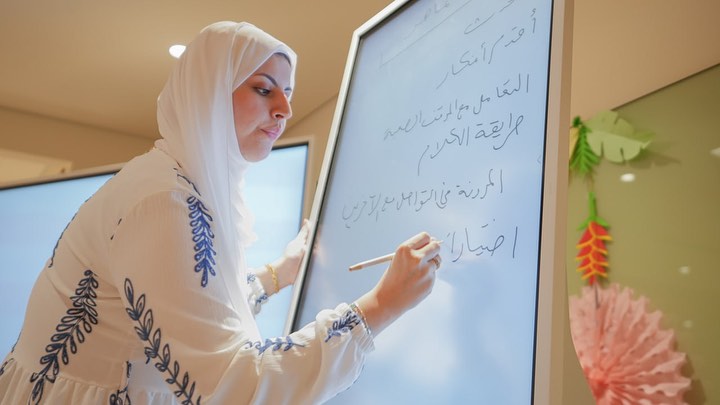 أقدم أفكار
التعامل مع المواقف الصعبة
طريقة الكلام
المرونة في التواصل مع الآخرين
اختيار